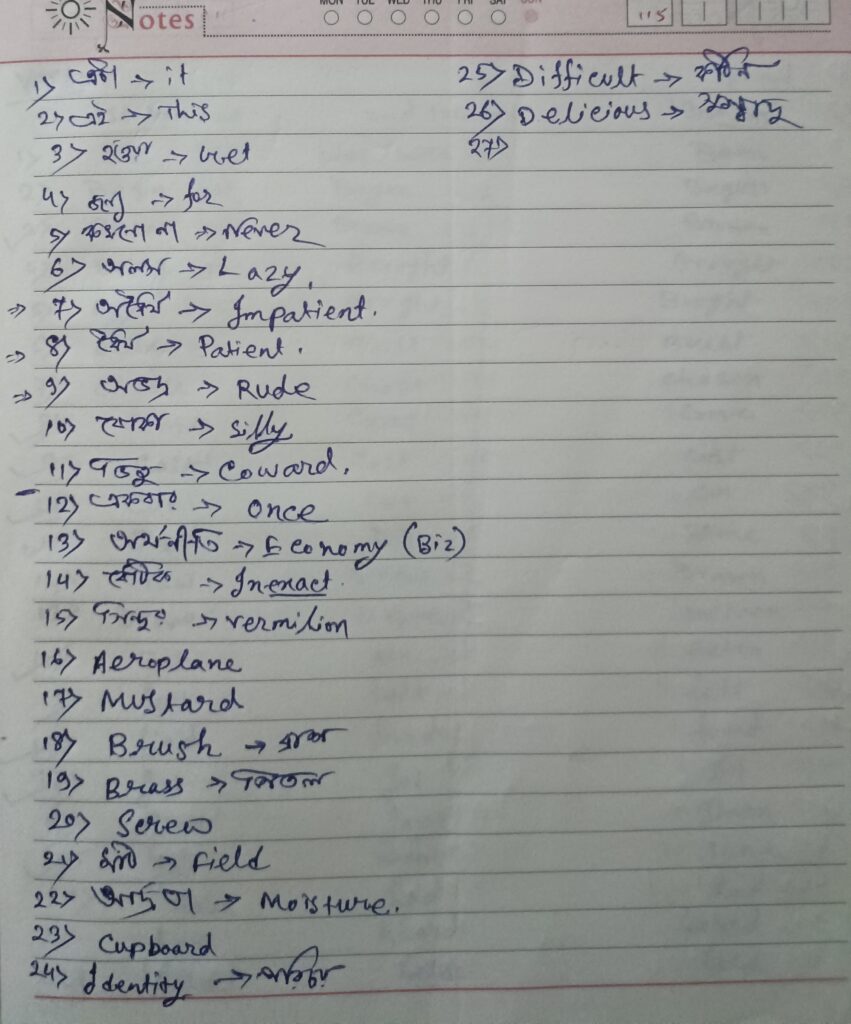 MON TUE WED THU FRI SAT SUN
Notes
115
1) এটা → it
2) এই → This
3) → wet
4) জন্য → for
5) কখনো না → Never
6) অলস → Lazy.
⇒ 7) অধৈর্য → Impatient.
⇒ 8) ধৈর্য → Patient.
⇒ 9) অভদ্র → Rude
10) বোকা → silly
11) → Coward.
12) একবার → once
13) অর্থনীতি → Economy (Biz)
14) বেঠিক → Inexact.
15) সিন্দুর → vermilion
16) Aeroplane
17) Mustard
18) Brush → ব্রাশ
19) Brass → পিতল
20) Screw
21) মাঠ → Field
22) আর্দ্রতা → Moisture.
23) Cupboard
24) Identity → পরিচয়
25) Difficult → কঠিন
26) Delicious → সুস্বাদু
27)